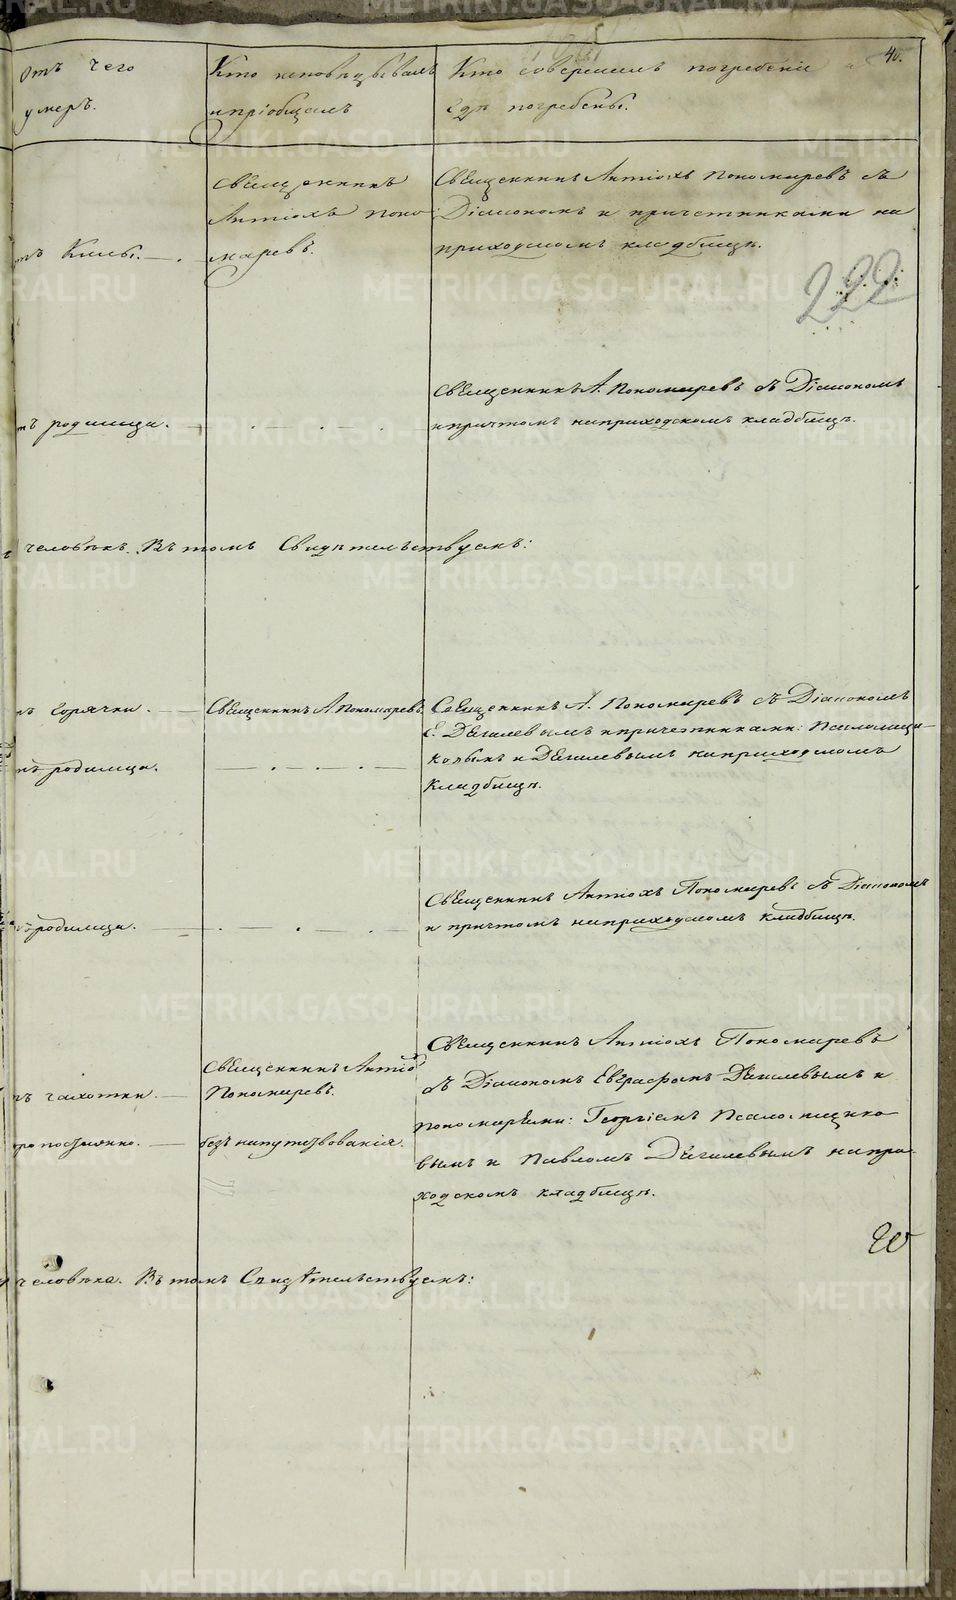 40.
Отъ чего
умеръ.
Кто исповѣдывалъ
и пріобщалъ
Кто совершилъ погребеніе и
гдѣ погребены.
отъ Килы.
Священникъ
Антіохъ Поно-
маревъ.
Священникъ Антіохъ Пономаревъ съ
Діакономъ и причетниками на
приходскомъ кладбищѣ.
222
отъ родимца.
Священникъ А. Пономаревъ съ Діакономъ
и причтомъ на приходскомъ кладбищѣ.
человѣкъ. Въ томъ Свидѣтельствуемъ:
отъ горячки.
Священникъ А. Пономаревъ.
Священникъ А. Пономаревъ съ Діакономъ
Е. Дягилевымъ и причетниками: Псаломщи-
ковымъ и Дягилевымъ на приходскомъ
кладбищѣ.
отъ родимца.
отъ родимца.
Священникъ Антіохъ Пономаревъ съ Діакономъ
и причтомъ на приходскомъ кладбищѣ.
отъ чахотки.
Священникъ Антіохъ
Пономаревъ.
скоропостижно.
безъ напутствованія.
Священникъ Антіохъ Пономаревъ
съ Діакономъ Евграфомъ Дягилевымъ и
пономарями: Георгіемъ Псаломщико-
вымъ и Павломъ Дягилевымъ на при-
ходскомъ кладбищѣ.
человѣка. Въ томъ Свидѣтельствуемъ:
METRIKI.GASO-URAL.RU